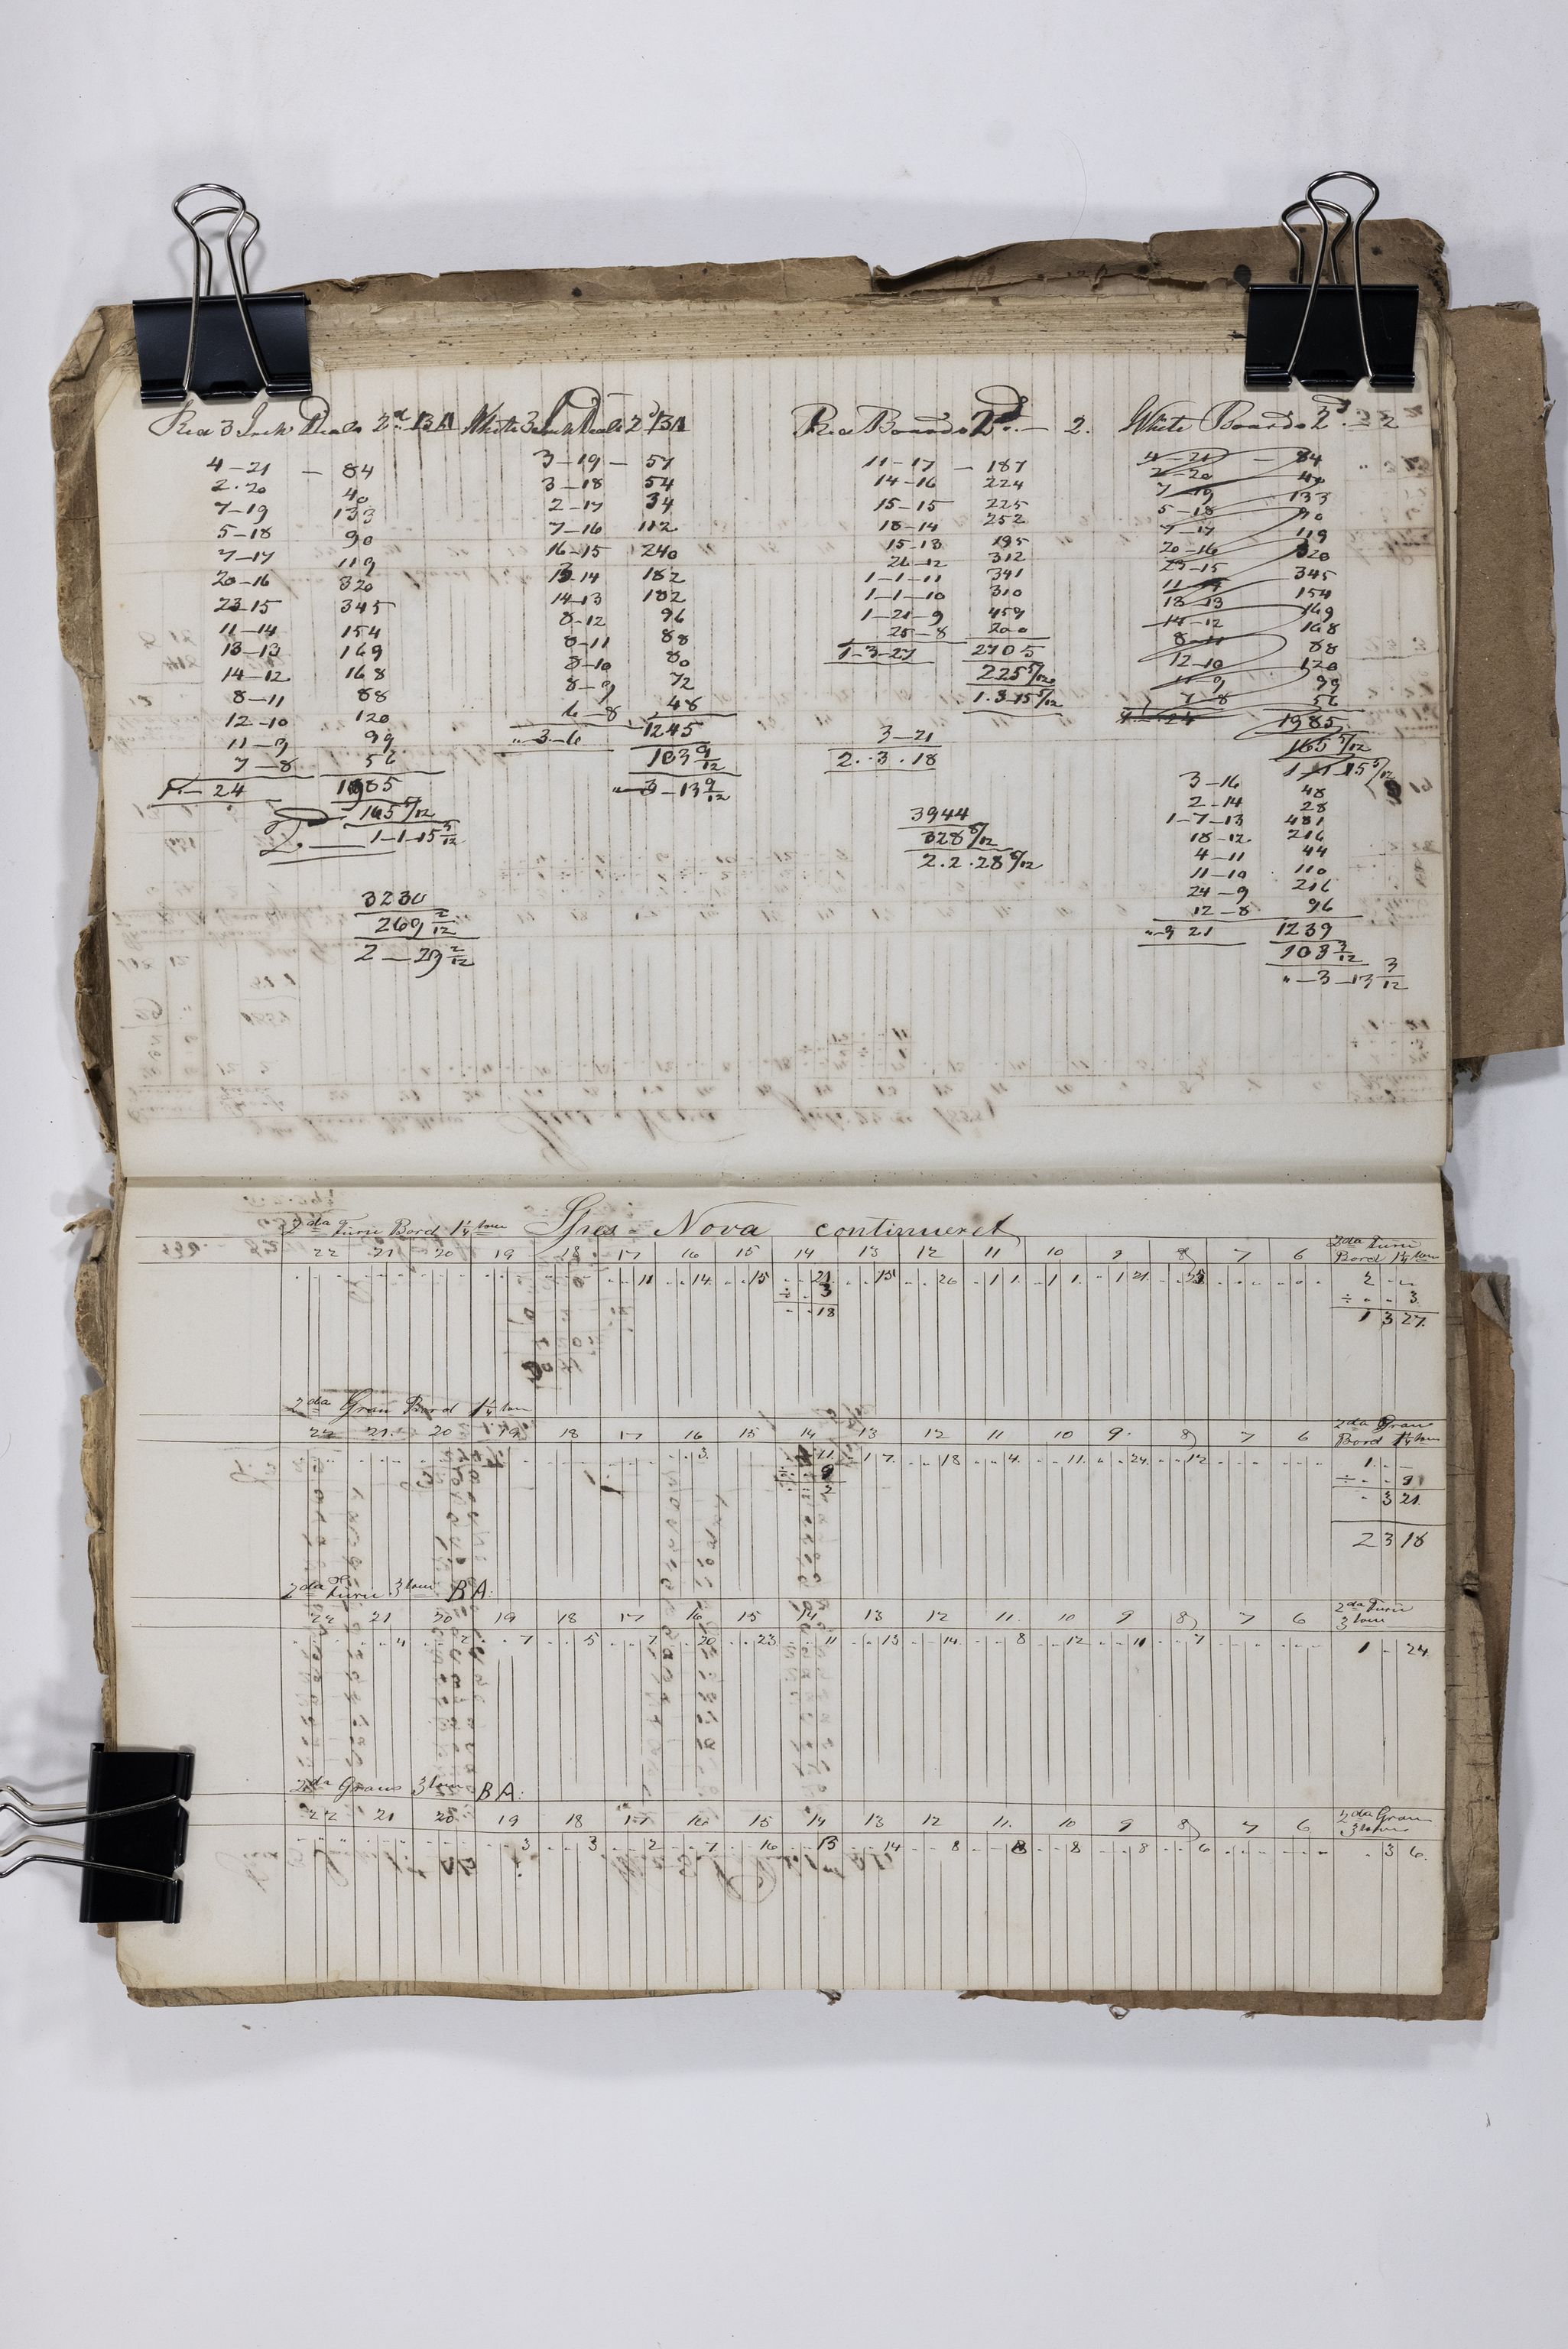 Red 3 Inch Deals 2d BA
4-21 - 84
2-20 40
7-19 133
5-18 90
7-17 119
20-16 320
23-15 345
11-14 154
13-13 169
14-12 168
8-11 88
12-10 120
11-9 99
7-8 56
1"-24 1985
165 5/12
1-1-15 5/12
3230
269 2/12
2-29 2/12
White 3 Inch Deals 2d BA
3-19 - 57
3-18 54
2-17 34
7-16 112
16-15 240
13-14 182
14-13 182
8-12 96
8-11 88
8-10 80
8-9 72
6-8 48
"-3-6 1245
103 9/12
"-3-13 9/12
Red Boards 2d - 2.
11-17 - 187
14-16 224
15-15 225
18-14 252
15-13 195
26-12 312
1-1-11 341
1-1-10 310
1-21-9 459
25-8 200
1-3-27 2705
225 5/12
1.3-15 5/12
3-21
2.3.18
3944
328 8/12
2.2.28 8/12
White Boards 2d - 2
4-21 - 84
2-20 40
7-19 133
5-18 90
7-17 119
20-16 320
23-15 345
11-14 154
13-13 169
14-12 168
8-11 88
12-10 120
11-9 99
7-8 56
1985
165 5/12
1-1-15 5/12
3-16 48
2-14 28
1-7-13 481
18-12 216
4-11 44
11-10 110
24-9 216
12-8 96
"-3 21 1239
103 3/12
"-3-13 3/12
Spes Nova continueret
2da Furu Bord 1¼ tom
22 21 20 19 18 17 16 15 14 13 12 11 10 9 8 7 6 2da Furu Bord 1¼ tom
11 14 15 21 15 26 1 1 1 1 1 21 25 2 - -
÷ 3 ÷ - - 3
18 1 3 27
2da Gran Bord 1¼ tom
22 21 20 19 18 17 16 15 14 13 12 11 10 9 8 7 6 2da Gran Bord 1¼ tom
3 11 1 7 18 4 11 24 12 1 - -
÷ 9 ÷ - - 9
2 - 3 21
2 3 18
2da Furu 3 tom BA:
22 21 20 19 18 17 16 15 14 13 12 11 10 9 8 7 6 2da Furu 3 tom
4 2 7 5 7 20 23 11 13 14 8 12 11 7 1 - 24
2da Grans 3 tom BA:
22 21 20 19 18 17 16 15 14 13 12 11 10 9 8 7 6 2da Gran 3 tom
3 3 2 7 16 13 14 8 8 8 8 6 - 3 6